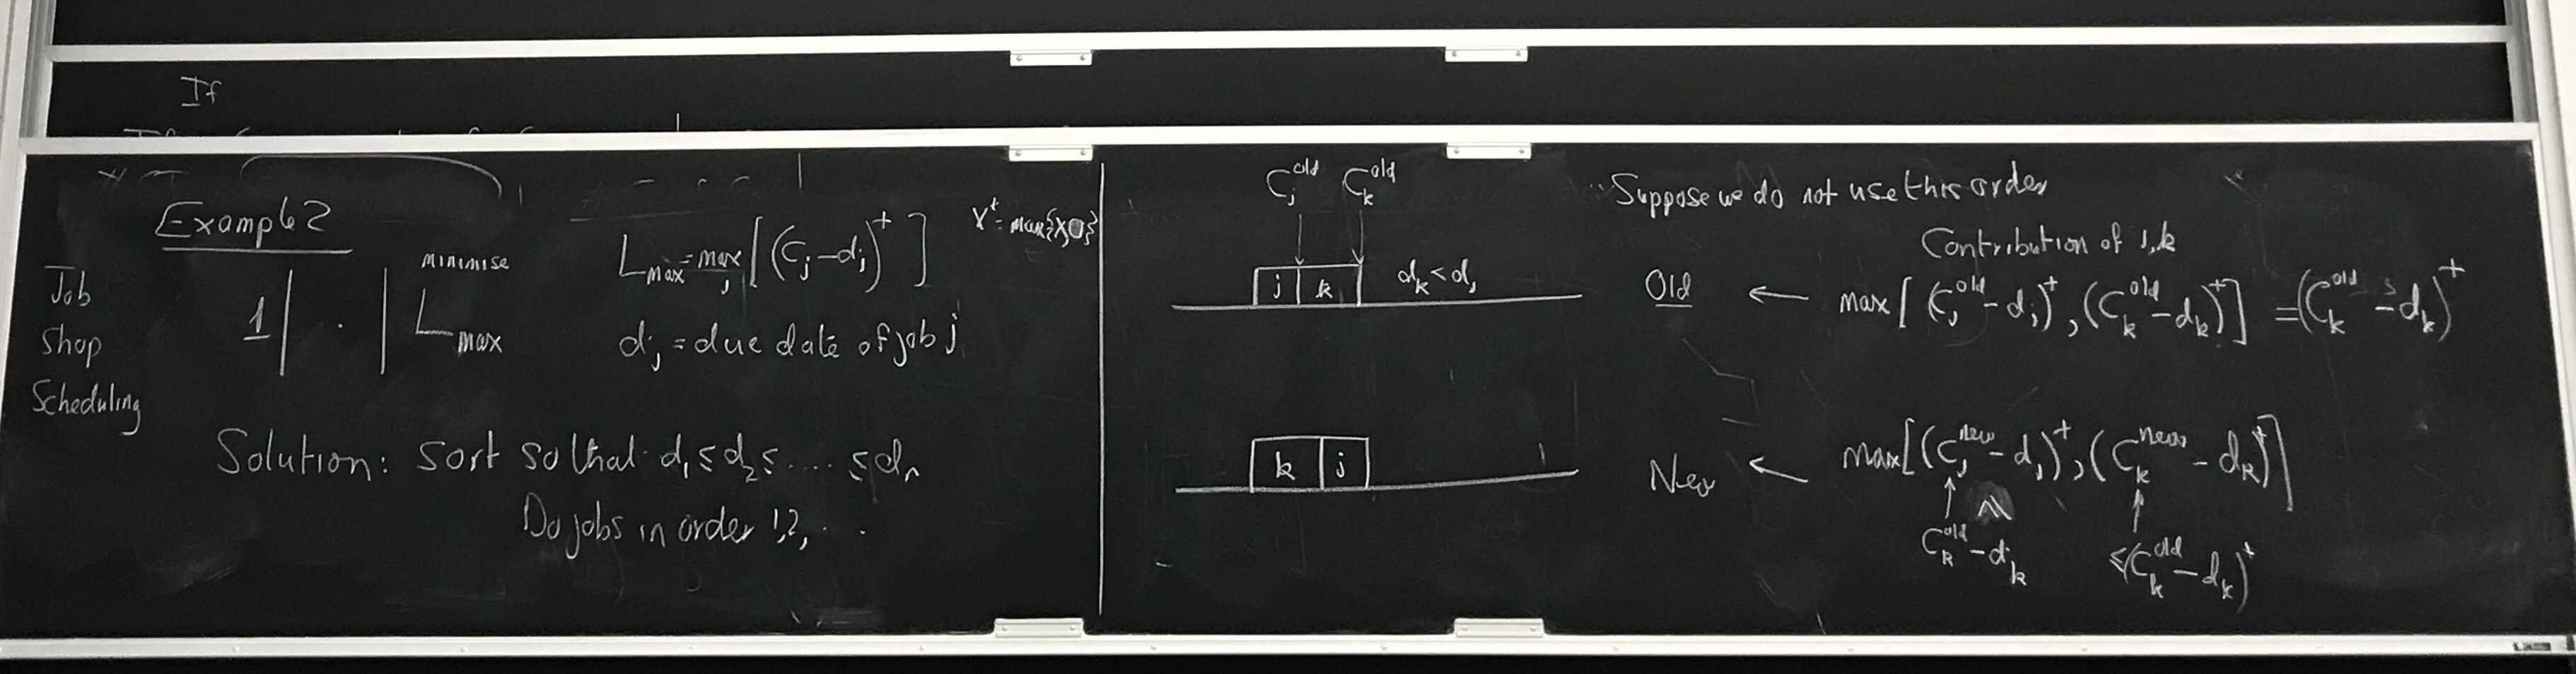 If
Example 2
Job
Shop
Scheduling
1 | · | minimise L_max
L_max = max_j [(C_j - d_j)^+]
x^+ = max{x,0}
d_j = due date of job j
Solution: sort so that d_1 ≤ d_2 ≤ .... ≤ d_n
Do jobs in order 1,2, . .
C_j^old C_k^old
j k d_k < d_j
k j
Suppose we do not use this order
Contribution of j,k
Old ← max[(C_j^old - d_j)^+, (C_k^old - d_k)^+] = (C_k^old - d_k)^+
New ← max[(C_j^new - d_j)^+, (C_k^new - d_k)^+]
↑ ↑
C_k^old - d_k ≤(C_k^old - d_k)^+